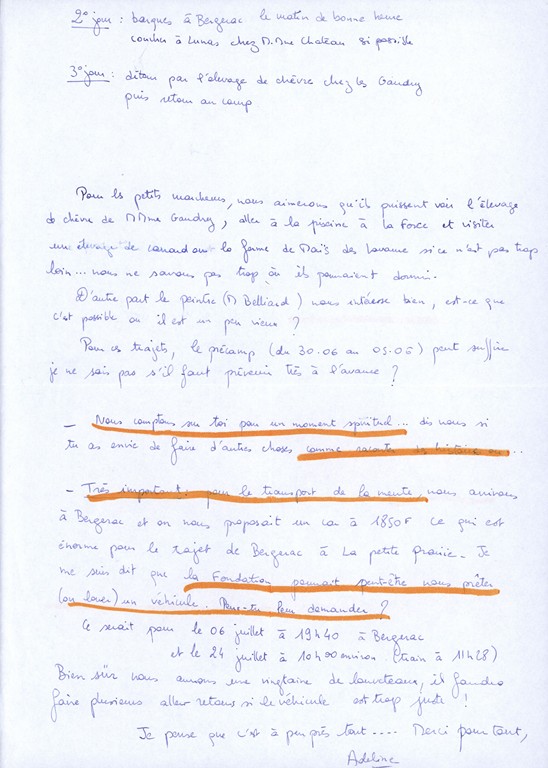 2º jour : barques à Bergerac le matin de bonne heure
coucher à Lunas chez M.Mme Chateau si possible
3º jour : détour par l'élevage de chèvre chez les Gaudry
puis retour au camp
Pour les petits marcheurs, nous aimerons qu'ils puissent voir l'élevage
de chèvre de MMme Gaudry, aller à la piscine à la Force et visiter
un élevage de canard ou la ferme de Maïs des si ce n'est pas trop
loin... nous ne savons pas trop où ils pourraient dormir.
D'autre part le peintre (M Belliard) nous intéresse bien, est-ce que
c'est possible ou il est un peu vieux ?
Pour ces trajets, le précamp (du 30.06 au 05.06) peut suffire
je ne sais pas s'il faut prévenir très à l'avance ?
- Nous comptons sur toi pour un moment spirituel... dis nous si
tu as envie de faire d'autres choses comme raconter des histoire ou...
- Très important : pour le transport de la meute, nous arrivons
à Bergerac et on nous proposait un car à 1850F ce qui est
énorme pour le trajet de Bergerac à La petite Prairie. Je
me suis dit que la Fondation pourrait peut-être nous prêter
(ou louer) un véhicule. Peux-tu leur demander ?
Ce serait pour le 06 juillet à 19H40 à Bergerac
et le 24 juillet à 10H00 environ (train à 11H28)
Bien sûr nous aurons une vingtaine de louveteaux, il faudra
faire plusieurs aller retours si le véhicule est trop juste !
Je pense que c'est à peu près tout.... Merci pour tout,
Adeline